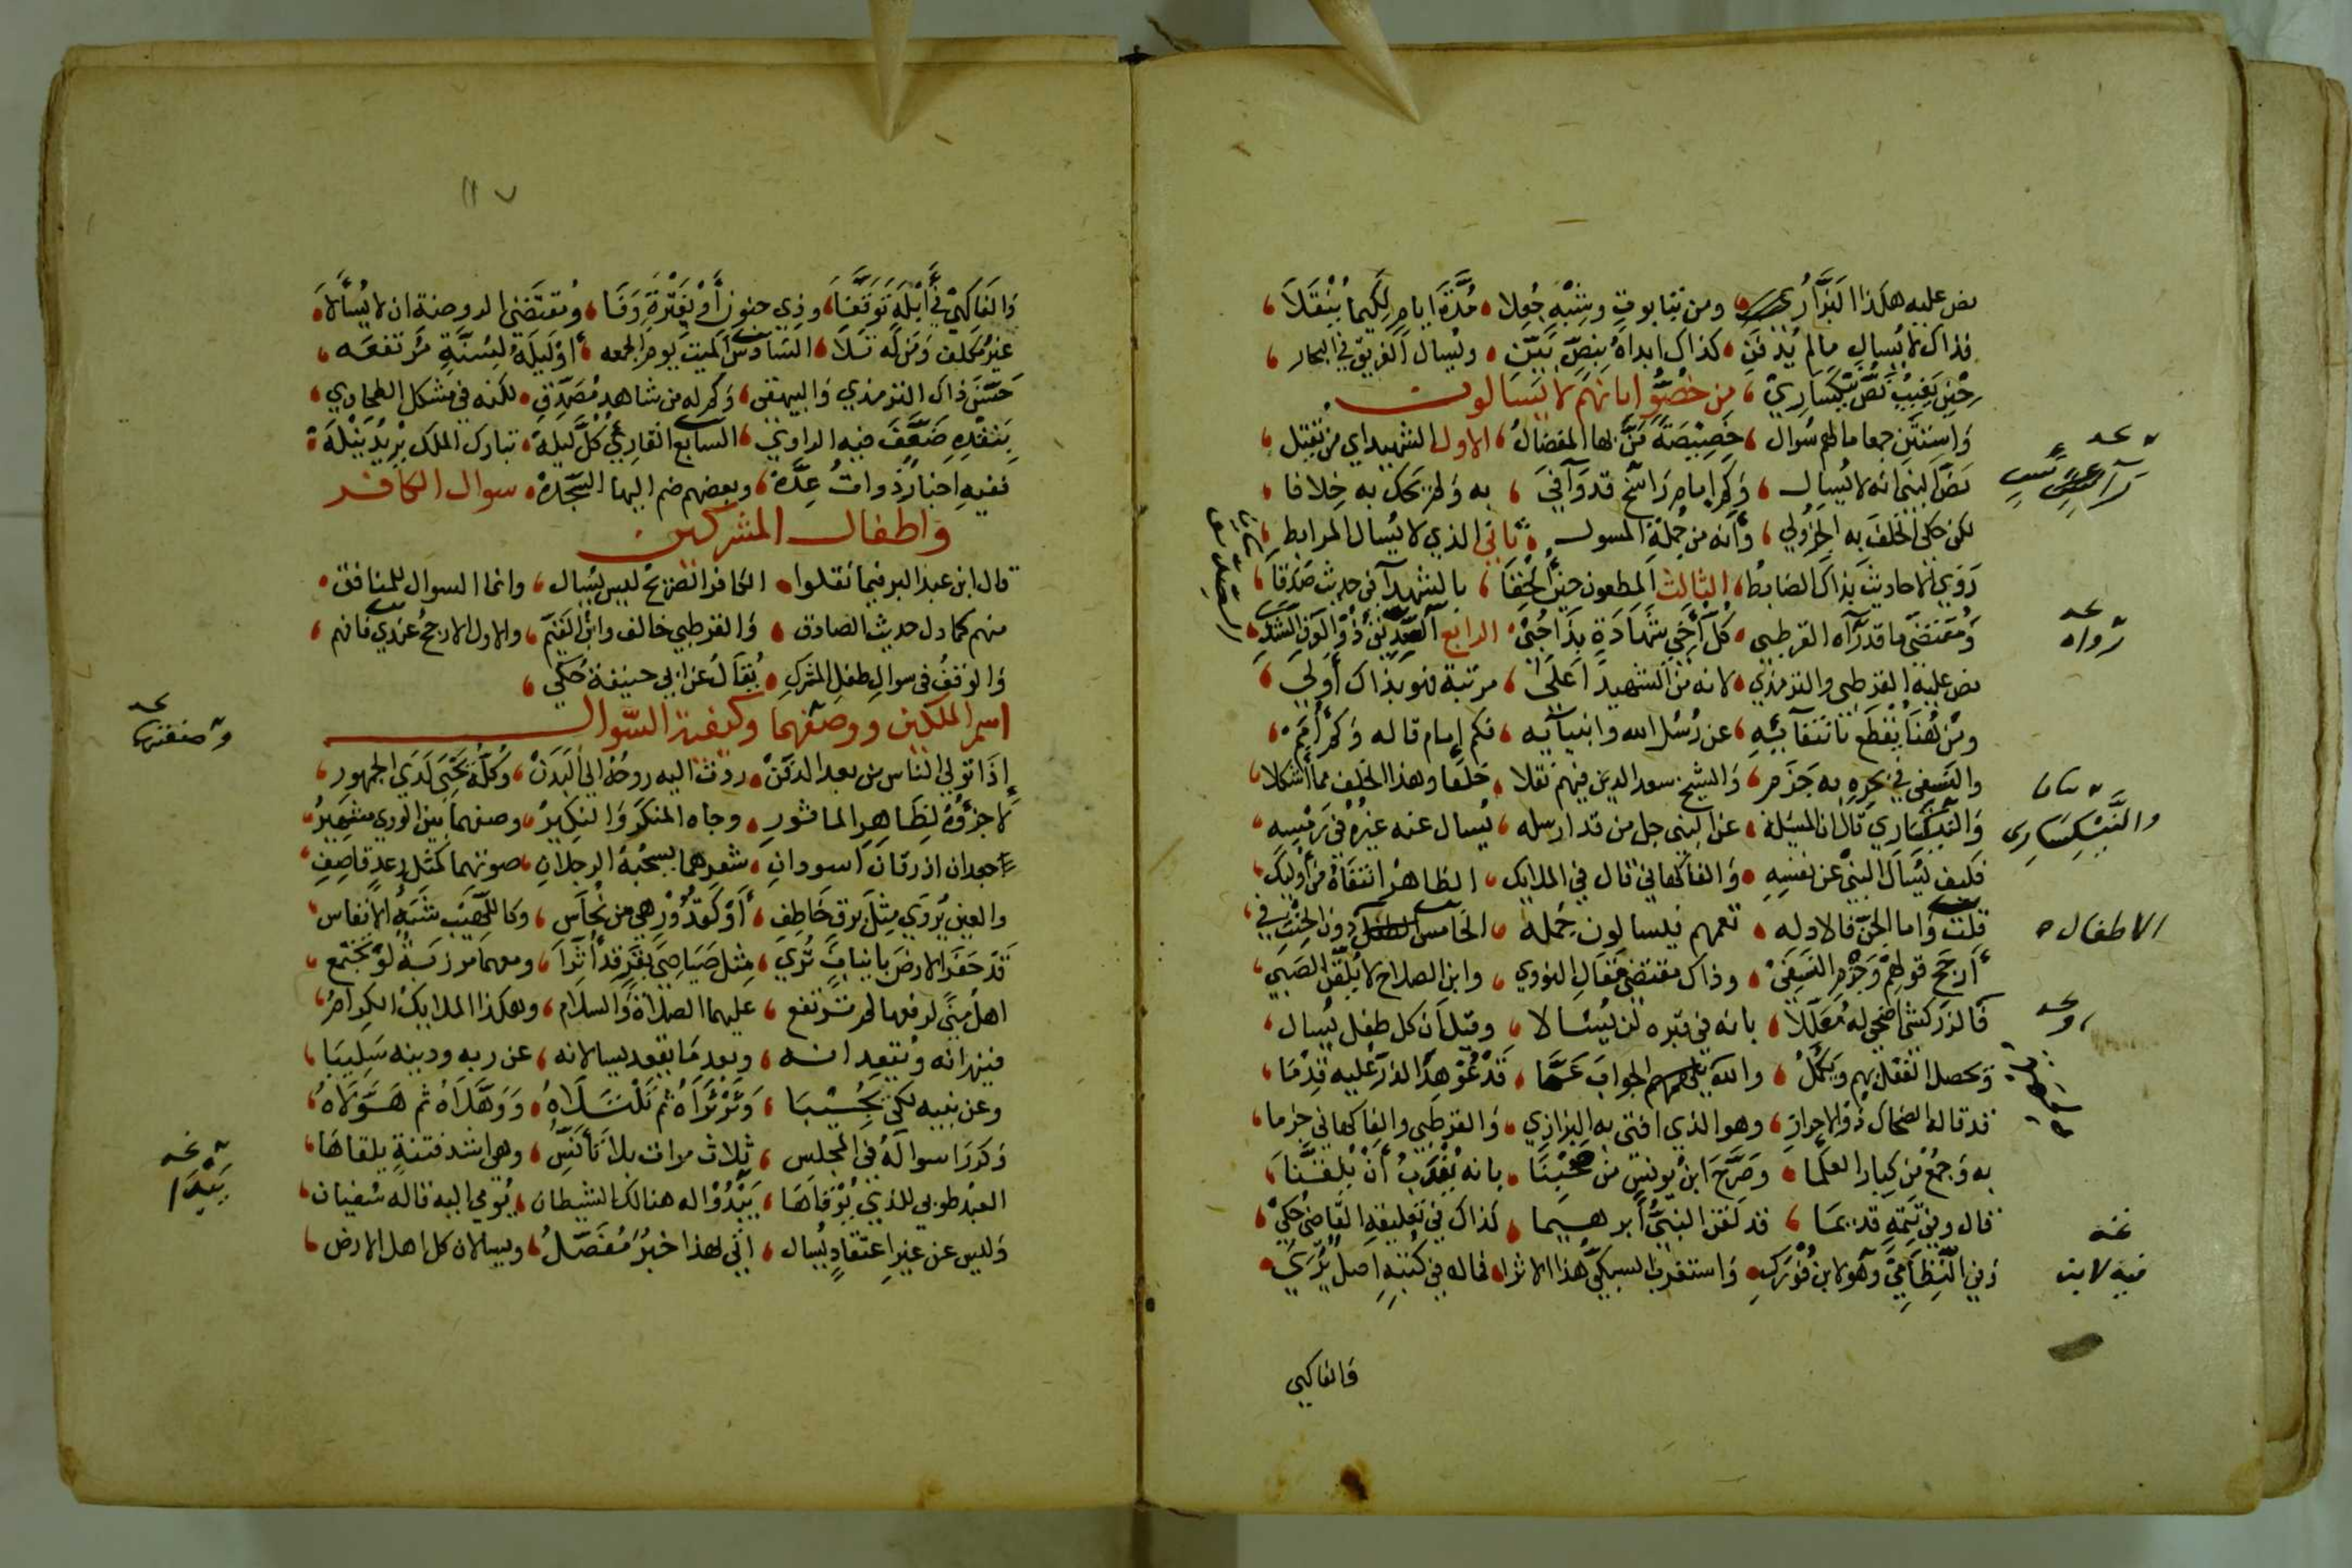 نص عليه هكذا البزاري ومن بتابوت وشبه جعلا مدة ايام لكيما ينقلا
فذاك لا يسال ما لم يدفن كذاك ابداه بنص بين ويسال الغريق في البحار
من خصوا بانهم لا يسالون
واستثن جمعا ما لهم سوال خصيصة من بها المفضال الاول الشهيد اي من قتل
نص النبي انه لا يسال وكم امام راسخ قد وافى به ولم يحك به خلافا
لكن حكى الخلف به الجزولي وانه من جملة المسول ثاني الذي لا يسال المرابط
روي الاحاديث بذاك الضابط الثالث المطعون حين الحقا بالشهدا في حديث صدقا
ومقتضى ما قد رآه القرطبي كل اخي شهادة بذا حبي الرابع الصديق ذو الوفي
نص عليه القرطبي والترمذي لانه من الشهيد اعلى مرتبة فهو بذاك اولى
ومن هنا يقطع بانتفائه عن رسل الله وانبيائه فكم امام قاله وكم امه
والنسفي في بحره به جزم والشيخ سعد الدين فيهم نقلا خلفا وهذا الخلف مما اشكلا
والنيكساري قال ان المسئلة عن النبي جل من قد ارسله يسال عنه غيره في رمسه
فكيف يسال النبي عن نفسه والفاكهاني قال في الملايك الظاهر انتفاه من اوليك
قلت واما الجن فالادله تعمهم فيسالون جمله الخامس الطفل دون الحنث في
ارجح قولهم وجزم النسفي وذاك مقتضى مقال النووي وابن الصلاح لا يلقن الصبي
فالزركشي اضحى له معللا بانه في قبره لن يسئالا وقيل ان كل طفل يسال
ويحصل العقل بهم ويكمل والله يلهمهم الجواب عما قد غمو هذا الذر عليه قدما
قد قاله الضحاك ذو الاحراز وهو الذي افتى به البزازي والقرطبي والفاكهاني جزما
به وجمع من كبار العلما وصرح ابن يونس من صحبنا بانه يندب ان يلقنا
قال وفي تتمة قديما قد لقن النبي ابرهيما كذاك في تعليقه القاضي حكي
وفي النظامي وهو لابن فورك واستغرب السبكي هذا الاثرا قاله في كتبه اصل يرى
والفاكهي
رواه
والنيكساري
الاطفال
فيه لابن
١١٧
والفاكهي في ابله توقفا وذي جنون او بفترة وفا ومقتضى الروضة ان لا يسالا
غير مكلف ومن له تلا السادس الميت يوم الجمعه او ليلة لسنة مرتفعه
حسن ذاك الترمذي والبيهقي وكم له من شاهد مصدق لكنه في مشكل الطحاوي
بنقده ضعف فيه الراوي السابع القاري كل ليلة تبارك الملك يريد نيله
ففيه اخبار ذوات عدة وبعضهم ضم اليها السجدة سوال الكافر
واطفال المشركين
قال ابن عبد البر فيما نقلوا الكافر الصريح ليس يسال وانما السوال للمنافق
منهم كما دل حديث الصادق والقرطبي خالف وابن القيم والاول الارجح عندي فافهم
والوقف في سوال طفل المشرك يقال عن ابي حنيفة حكي
اسم الملكين ووصفهما وكيفية السوال
اذا تولى الناس من بعد الدفن ردت اليه روحه الى البدن وكله يحيى لدى الجمهور
لا جزؤه لظاهر الماثور وجاه المنكر والنكير وصفهما بين الورى شهير
جعدان ازرقان اسودان شعرهما يسحبه الرجلان صوتهما كمثل رعد قاصف
والعين يروى مثل برق خاطف او كقدور هي من نحاس وكاللهيب شبه الانفاس
قد حفر الارض بانياب ترى مثل صياصي بقر قد اثرا ومعهما مرزبة لو تجتمع
اهل منى لرفعها لم ترتفع عليهما الصلاة والسلام وهكذا الملايك الكرام
فينهرانه ويقعدانه وبعد ما يقعد يسالانه عن ربه ودينه
وعن نبيه لكي وترتراه ثم تلتلاه ووهلاه ثم هولاه
وكررا سواله في المجلس ثلاث مرات بلا تانس وهي اشد فتنة يلقاها
العبد طوبى للذي يوقاها يبدو اله هنالك الشيطان يومي اليه قاله سفيان
وليس عن غير اعتقاد يسال اتى لهذا خبر مفصل ويسالان كل اهل الارض